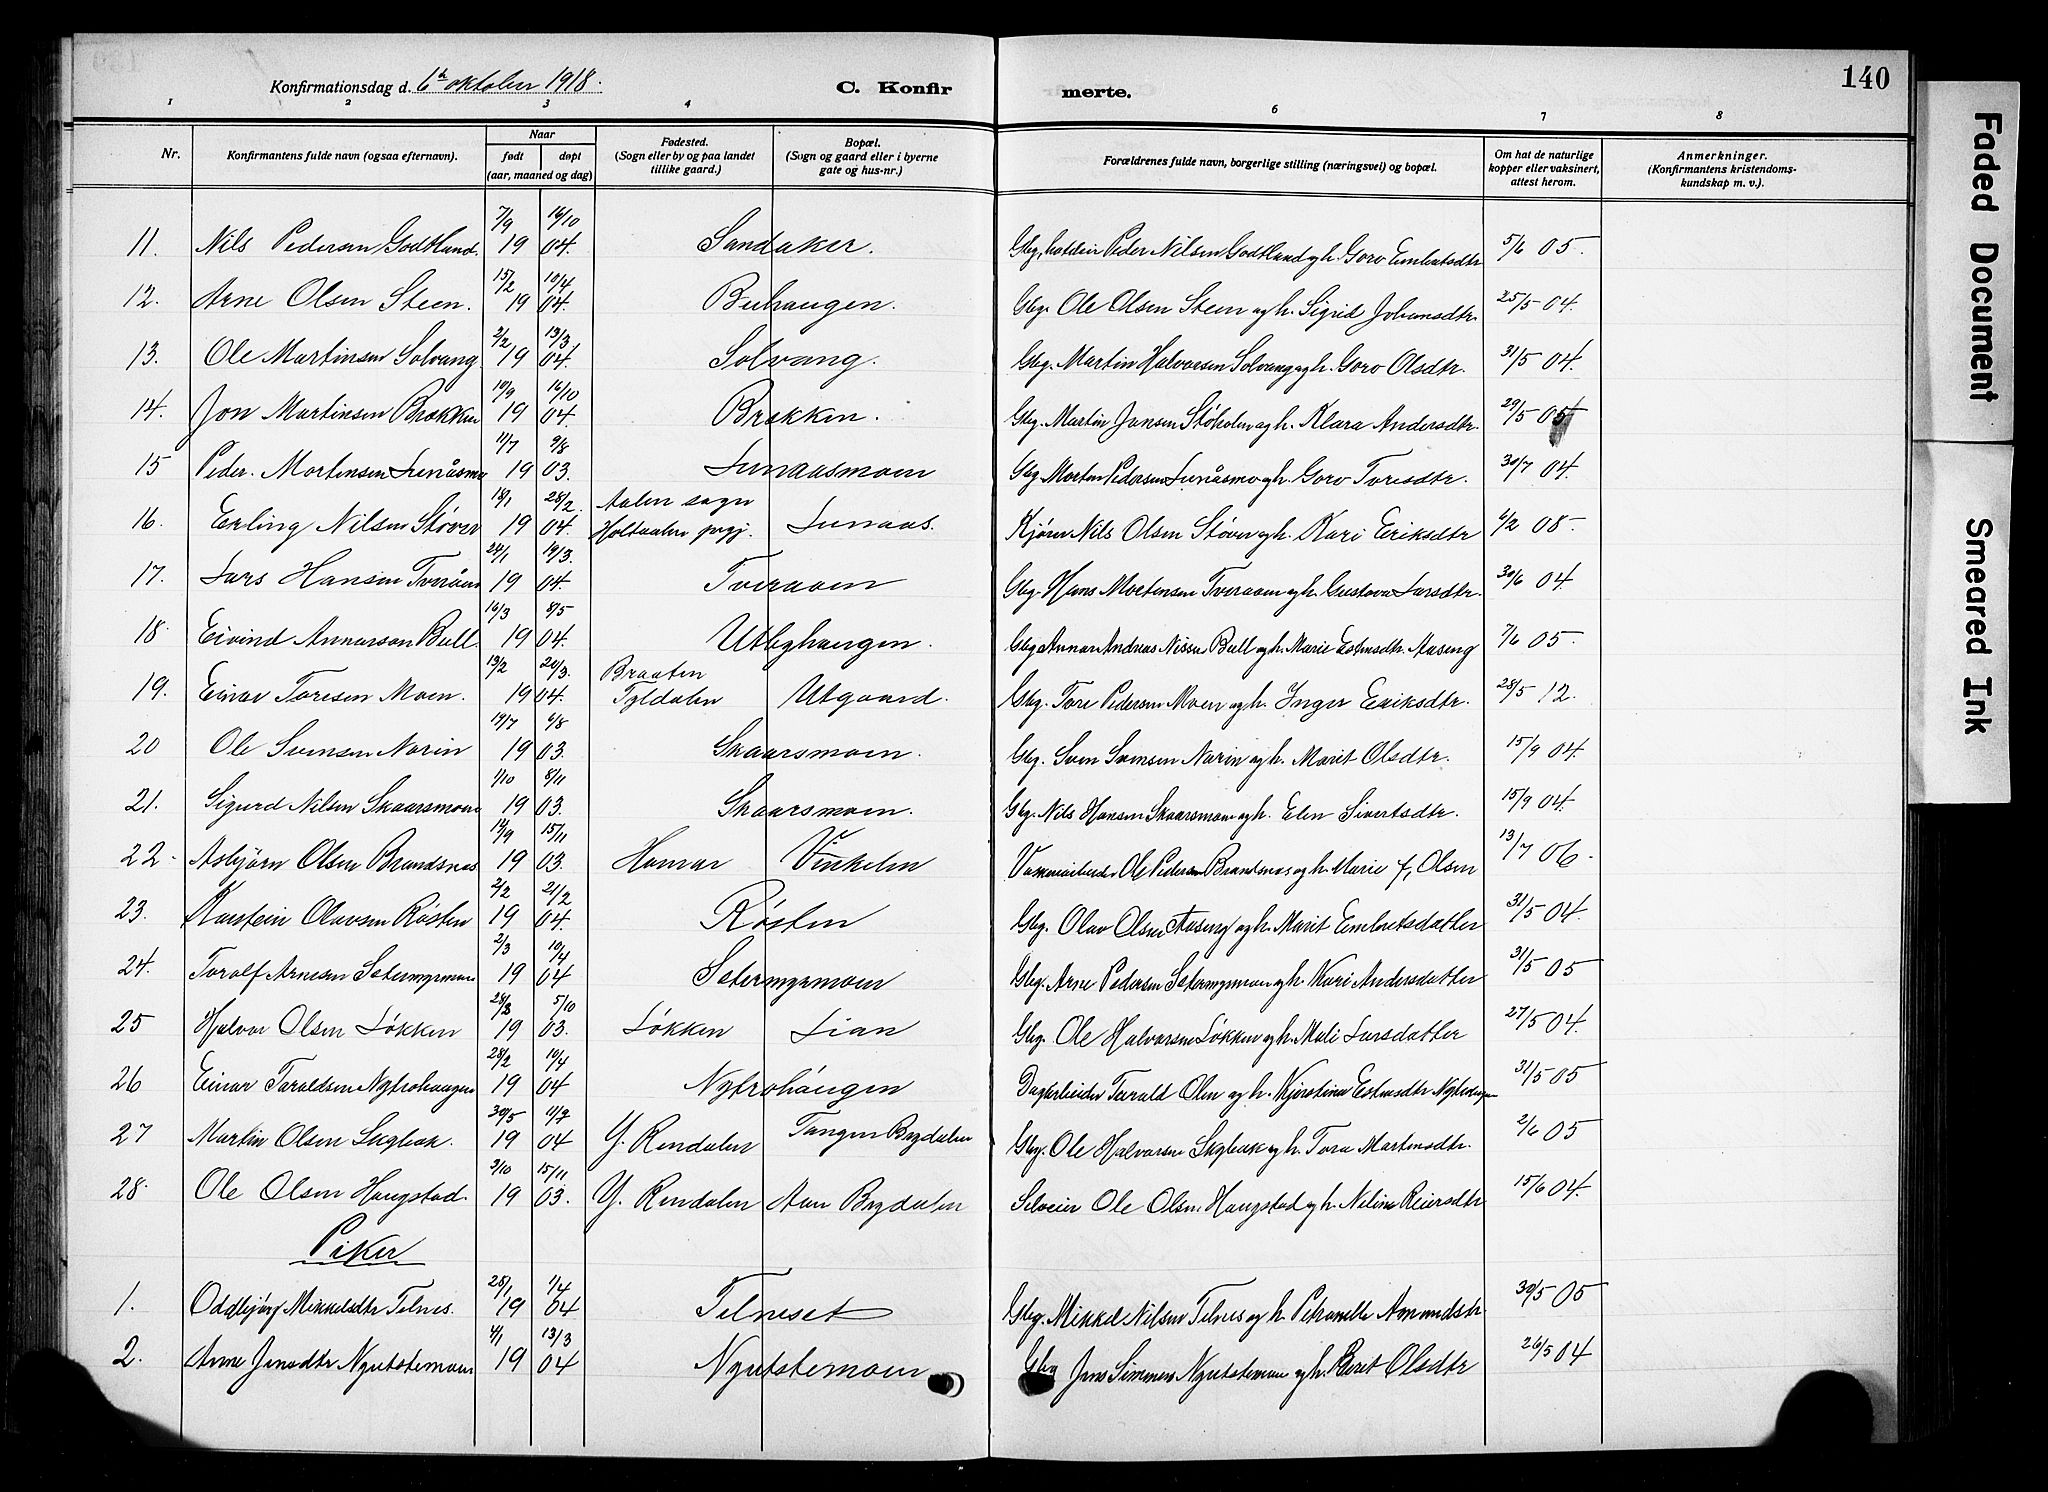 Konfirmationsdag d. 6te oktober 1918. C. Konfirmerte. 140
1 2 3 4 6 7 8
Nr. Konfirmantens fulde navn (ogsaa efternavn). Naar født døpt (aar, maaned og dag) Fødested. (Sogn eller by og paa landet tillike gaard.) Bopæl. (Sogn og gaard eller i byerne gate og hus-nr.) Forældrenes fulde navn, borgerlige stilling (næringsvei) og bopæl. Om hat de naturlige kopper eller vaksinert, attest herom. Anmerkninger. (Konfirmantens kristendomskundskap m. v.).
11. Nils Pedersen Godtland. 7/9 16/10 19 04. Sandaker. Gbg. Peder Nilsen Godtland og h. Goro Embretsdtr 5/6 05.
12. Arne Olsen Steen. 15/2 10/4 19 04. Buhaugen. Gbg. Ole Olsen Steen og h. Sigrid Johansdtr. 25/5 04.
13. Ole Martinsen Solvang 2/2 13/3 19 04. Solvang. Gbg. Martin Halvorsen Solvang og h. Goro Olsdtr. 31/5 04.
14. Jon Martinsen Brokken 19/9 16/10 19 04. Brokken. Gbg. Martin Jonsen Støholen og h. Klara Andersdtr. 29/5 05
15 Peder Mortensen Lunåsmo 11/7 9/8 19 03. Lunaasmoen Gbg Morten Pedersen Lunåsmo og h. Goro Toresdtr. 30/7 04.
16. Erling Nilsen Støver 18/1 28/2. 19 04. Aalen sogn Holtaalen prgj. Lunaas. Kjører Nils Olsen Støver og h. Kari Eriksdtr 6/2 08
17. Lars Hansen Tveråen 24/1 19/3. 19 04. Tveraaen Gbg. Hans Mortensen Tveraaen og h. Gustava Larsdtr. 30/6 04
18. Eivind Annarson Bull. 16/3 8/5 19 04. Utbyhaugen. Gbg Annar Andreas Nissen Bull og h. Marie Estensdtr. Aaseng 7/6 05.
19. Einar Toresen Moen. 13/2 20/3. 19 04. Braaten Tyldalen Utgaard. Gbg. Tore Pedersen Moen og h. Inger Eriksdtr. 28/5 12.
20 Ole Svensen Narin 19/7 6/8 19 03. Skaarsmoen. Gbg. Sven Svensen Narin og h. Marit Olsdtr. 15/9 04.
21. Sigurd Nilsen Skaarsmoen 1/10 8/11 19 03. Skaarsmoen. Gbg. Nils Hansen Skaarsmoen og h. Elen Sivertsdtr. 15/9 04.
22. Asbjørn Olsen Brandsnes 14/9 15/11 19 03. Hamar Vinkelen Ole Pedersen Brandsnes og h. Marie f. Olsen 13/7 06.
23. Karstein Olavsen Røsten 2/2 21/2 19 04. Røsten Gbg. Olav Olsen Aaseng og h. Marit Embretsdatter 31/5 04.
24. Toralf Arnesen Setermyrmoen 2/3 10/4 19 04 Setermyrmoen Gbg. Arne Pedersen Setermyrmoen og h. Kari Andersdatter 31/5 05
25 Halvor Olsen Løkken 28/8 5/10 19 03. Løkken Lian Gbg. Ole Halvorsen Løkken og h. Mali Larsdatter 27/5 04.
26 Einar Taraldsen Nytrohaugen 28/2 10/4 19 04 Nytrohaugen Dagarbeider Tarald Olsen og h. Kjerstina Estensdtr Nytrohaugen 31/5 05
27 Martin Olsen Skybak. 30/5 11/9 19 04 Y. Rendalen Tangen Brydalen Gbg. Ole Halvorsen Skybak og h. Tora Martinsdtr. 2/6 05
28. Ole Olsen Haugstad. 3/10 15/11 19 03. Y. Rendalen Aaen Brydalen Selveier Ole Olsen Haugstad og h. Neline Reiersdtr 15/6 04.
Piker
1. Oddbjørg Mikkelsdtr Telnes. 28/1 1/4 19 04 Telneset Gbg. Mikkel Nilsen Telnes og h. Petronelle Amundsdtr. 30/5 05
2. Anne Jensdtr Nyutstumoen 4/1 13/3 19 04 Nyutstumoen Gbg Jens Simensen Nyutstumoen og h. Beret Olsdtr 26/5 04
Faded Document
Smeared Ink